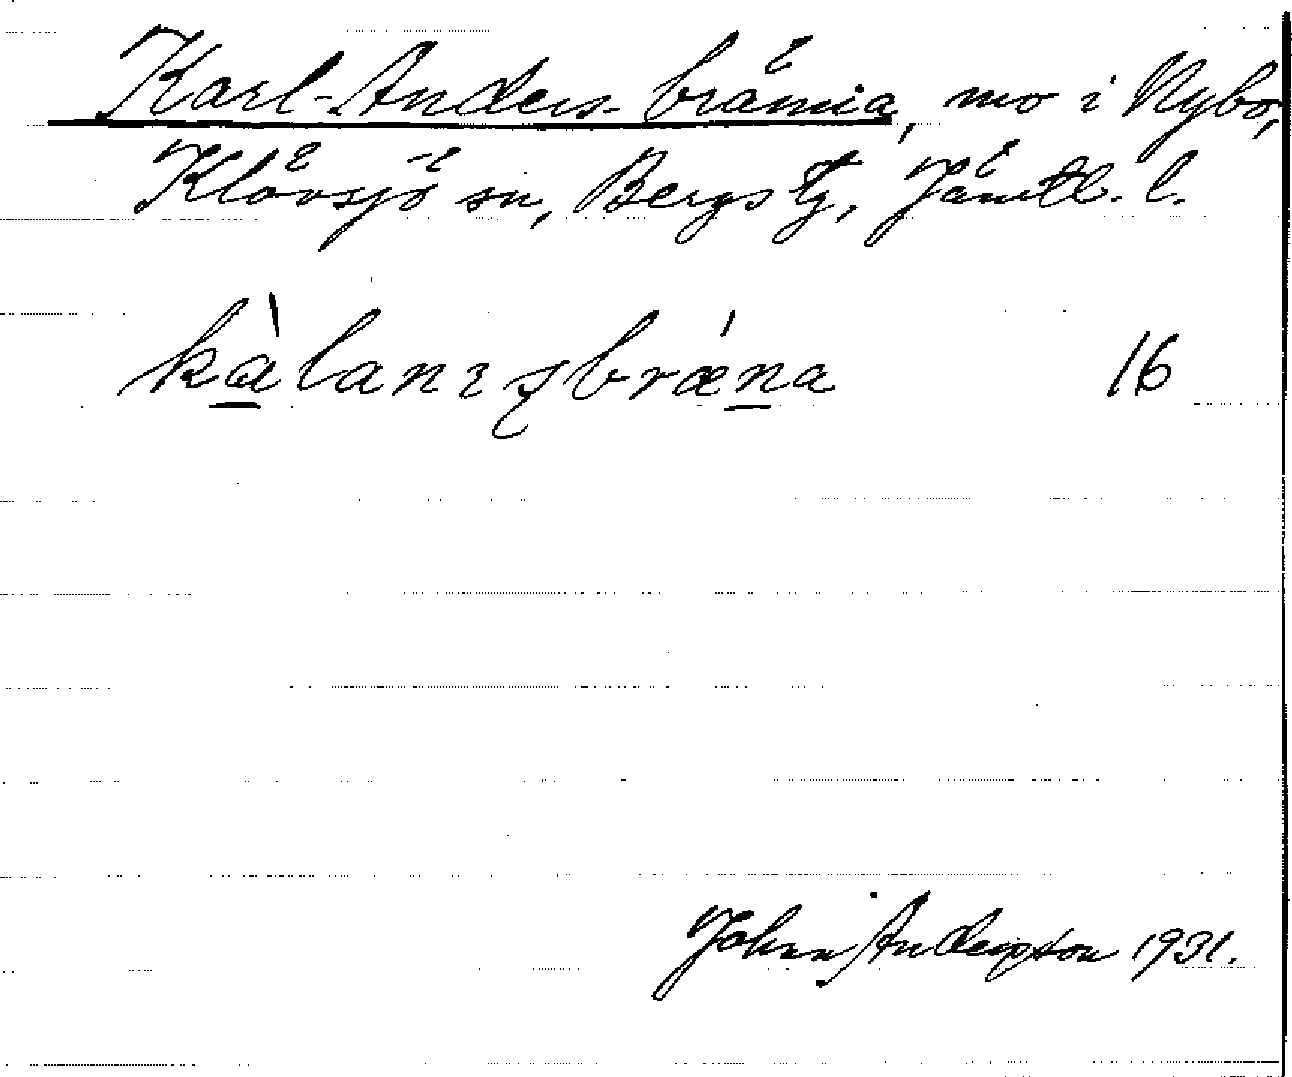 Karl-Anders-bränna, mo i Nybo,
Klövsjö sn, Bergs tg, Jämtl. l.
kàlanɪʂbrǽna 16
John Anderzton 1931.